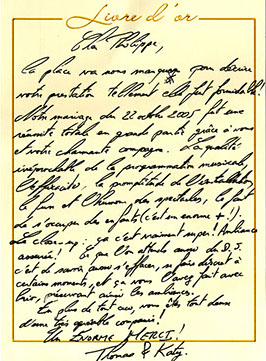 Livre d'or
Cher Philippe,
La place va nous manquer pour décrire
votre prestation tellement elle fut formidable !
Notre mariage du 22 octobre 2005 fut une
réussite totale en grande partie grâce à vous
et votre charmante compagne. La qualité
irréprochable de la programmation musicale,
l'efficacité, la promptitude de
le fun et l'humour des spectacles, le fait
de s'occuper des enfants (c'est un énorme + !),
Le close-up : ça c'est vraiment super ! Ambiance
assurée ! Ce que l'on attends aussi du D.J.
c'est de savoir aussi s'effacer, se faire discret à
certains moments, et ça vous l'avez fait avec
brio, préservant ainsi les ambiances.
En plus de tout ça, vous êtes tout deux
d'une très agréable compagnie !
Un ENORME MERCI !
Thomas & Katy